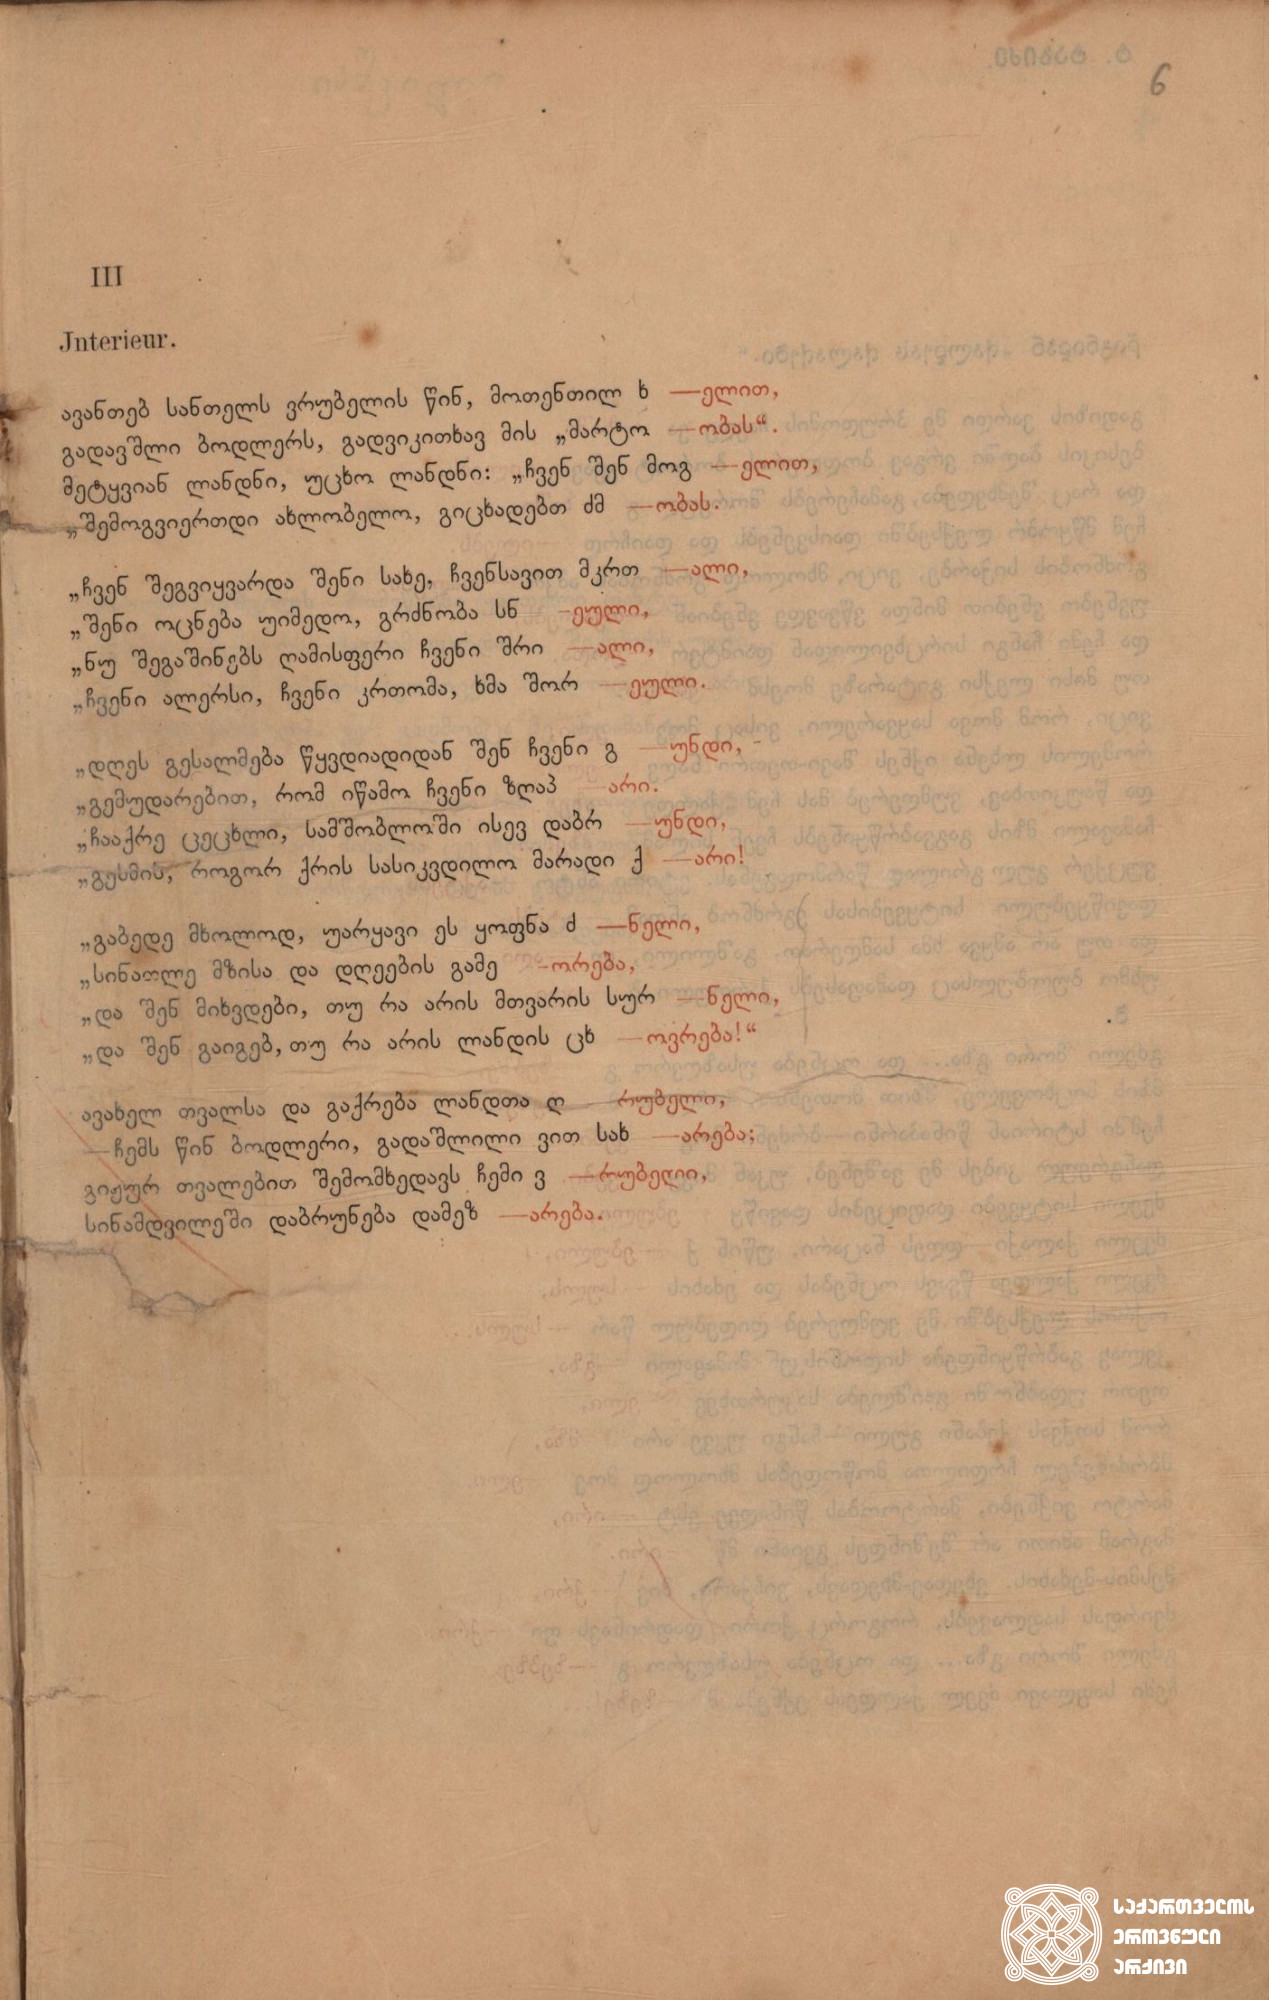 6
III
Jnterieur.
ავანთებ სანთელს ვრუბელის წინ, მოთენთილ ხ —ელით,
გადავშლი ბოდლერს, გადვიკითხავ მის „მარტო —ობას“.
მეტყვიან ლანდნი, უცხო ლანდნი: „ჩვენ შენ მოგ —ელით,
„შემოგვიერთდი ახლობელო, გიცხადებთ ძმ —ობას.
„ჩვენ შეგვიყვარდა შენი სახე, ჩვენსავით მკრთ —ალი,
„შენი ოცნება უიმედო, გრძნობა სნ —ეული,
„ნუ შეგაშინებს ღამისფერი ჩვენი შრი —ალი,
„ჩვენი ალერსი, ჩვენი კრთომა, ხმა შორ —ეული.
„დღეს გესალმება წყვდიადიდან შენ ჩვენი გ —უნდი,
„გემუდარებით, რომ იწამო ჩვენი ზღაპ —არი.
„ჩააქრე ცეცხლი, სამშობლოში ისევ დაბრ —უნდი,
„გესმის, როგორ ქრის სასიკვდილო მარადი ქ —არი!
„გაბედე მხოლოდ, უარყავი ეს ყოფნა ძ —ნელი,
„სინათლე მზისა და დღეების გამე —ორება,
„და შენ მიხვდები, თუ რა არის მთვარის სურ —ნელი,
„და შენ გაიგებ, თუ რა არის ლანდის ცხ —ოვრება!“
ავახელ თვალსა და გაქრება ლანდთა ღ —რუბელი,
—ჩემს წინ ბოდლერი, გადაშლილი ვით სახ —არება;
გიჟურ თვალებით შემომხედავს ჩემი ვ —რუბელი,
სინამდვილეში დაბრუნება დამეზ —არება.
საქართველოს
ეროვნული
არქივი